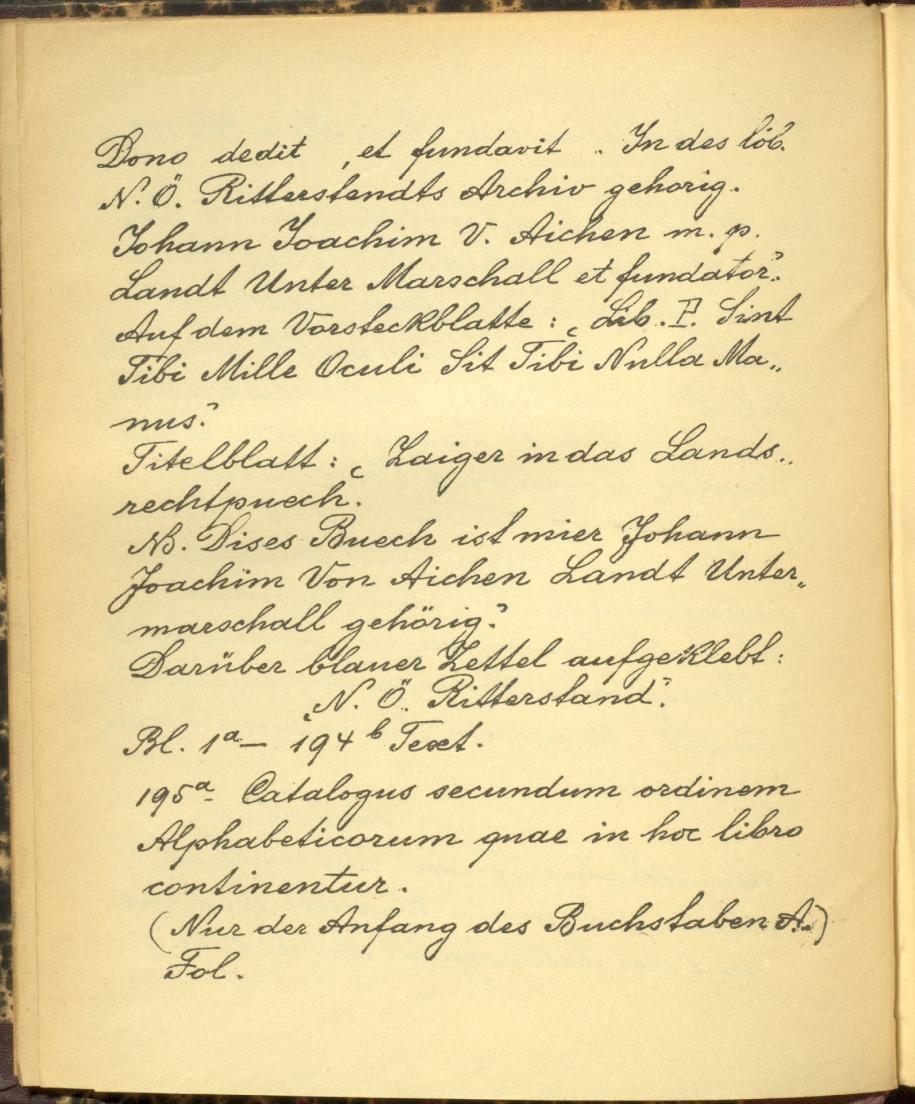 Dono dedit , et fundavit . In des löb.
N. Ö. Ritterstendts Archiv gehorig.
Johann Joachim V. Aichen m. p.
Landt Unter Marschall et fundator".
Auf dem Vorsteckblatte : „ Lib. P. Sint
Tibi Mille Oculi Sit Tibi Nulla Ma„
nus."
Titelblatt : „ Zaiger in das Lands„
rechtpuech".
NB. Dises Buech ist mier Johann
Joachim Von Aichen Landt Unter„
marschall gehörig."
Darüber blauer Zettel aufgeklebt :
„N. Ö. Ritterstand".
Bl. 1a — 194b Text.
195a- Catalogus secundum ordinem
Alphabeticorum quae in hoc libro
continentur.
(Nur der Anfang des Buchstaben A.)
Fol.